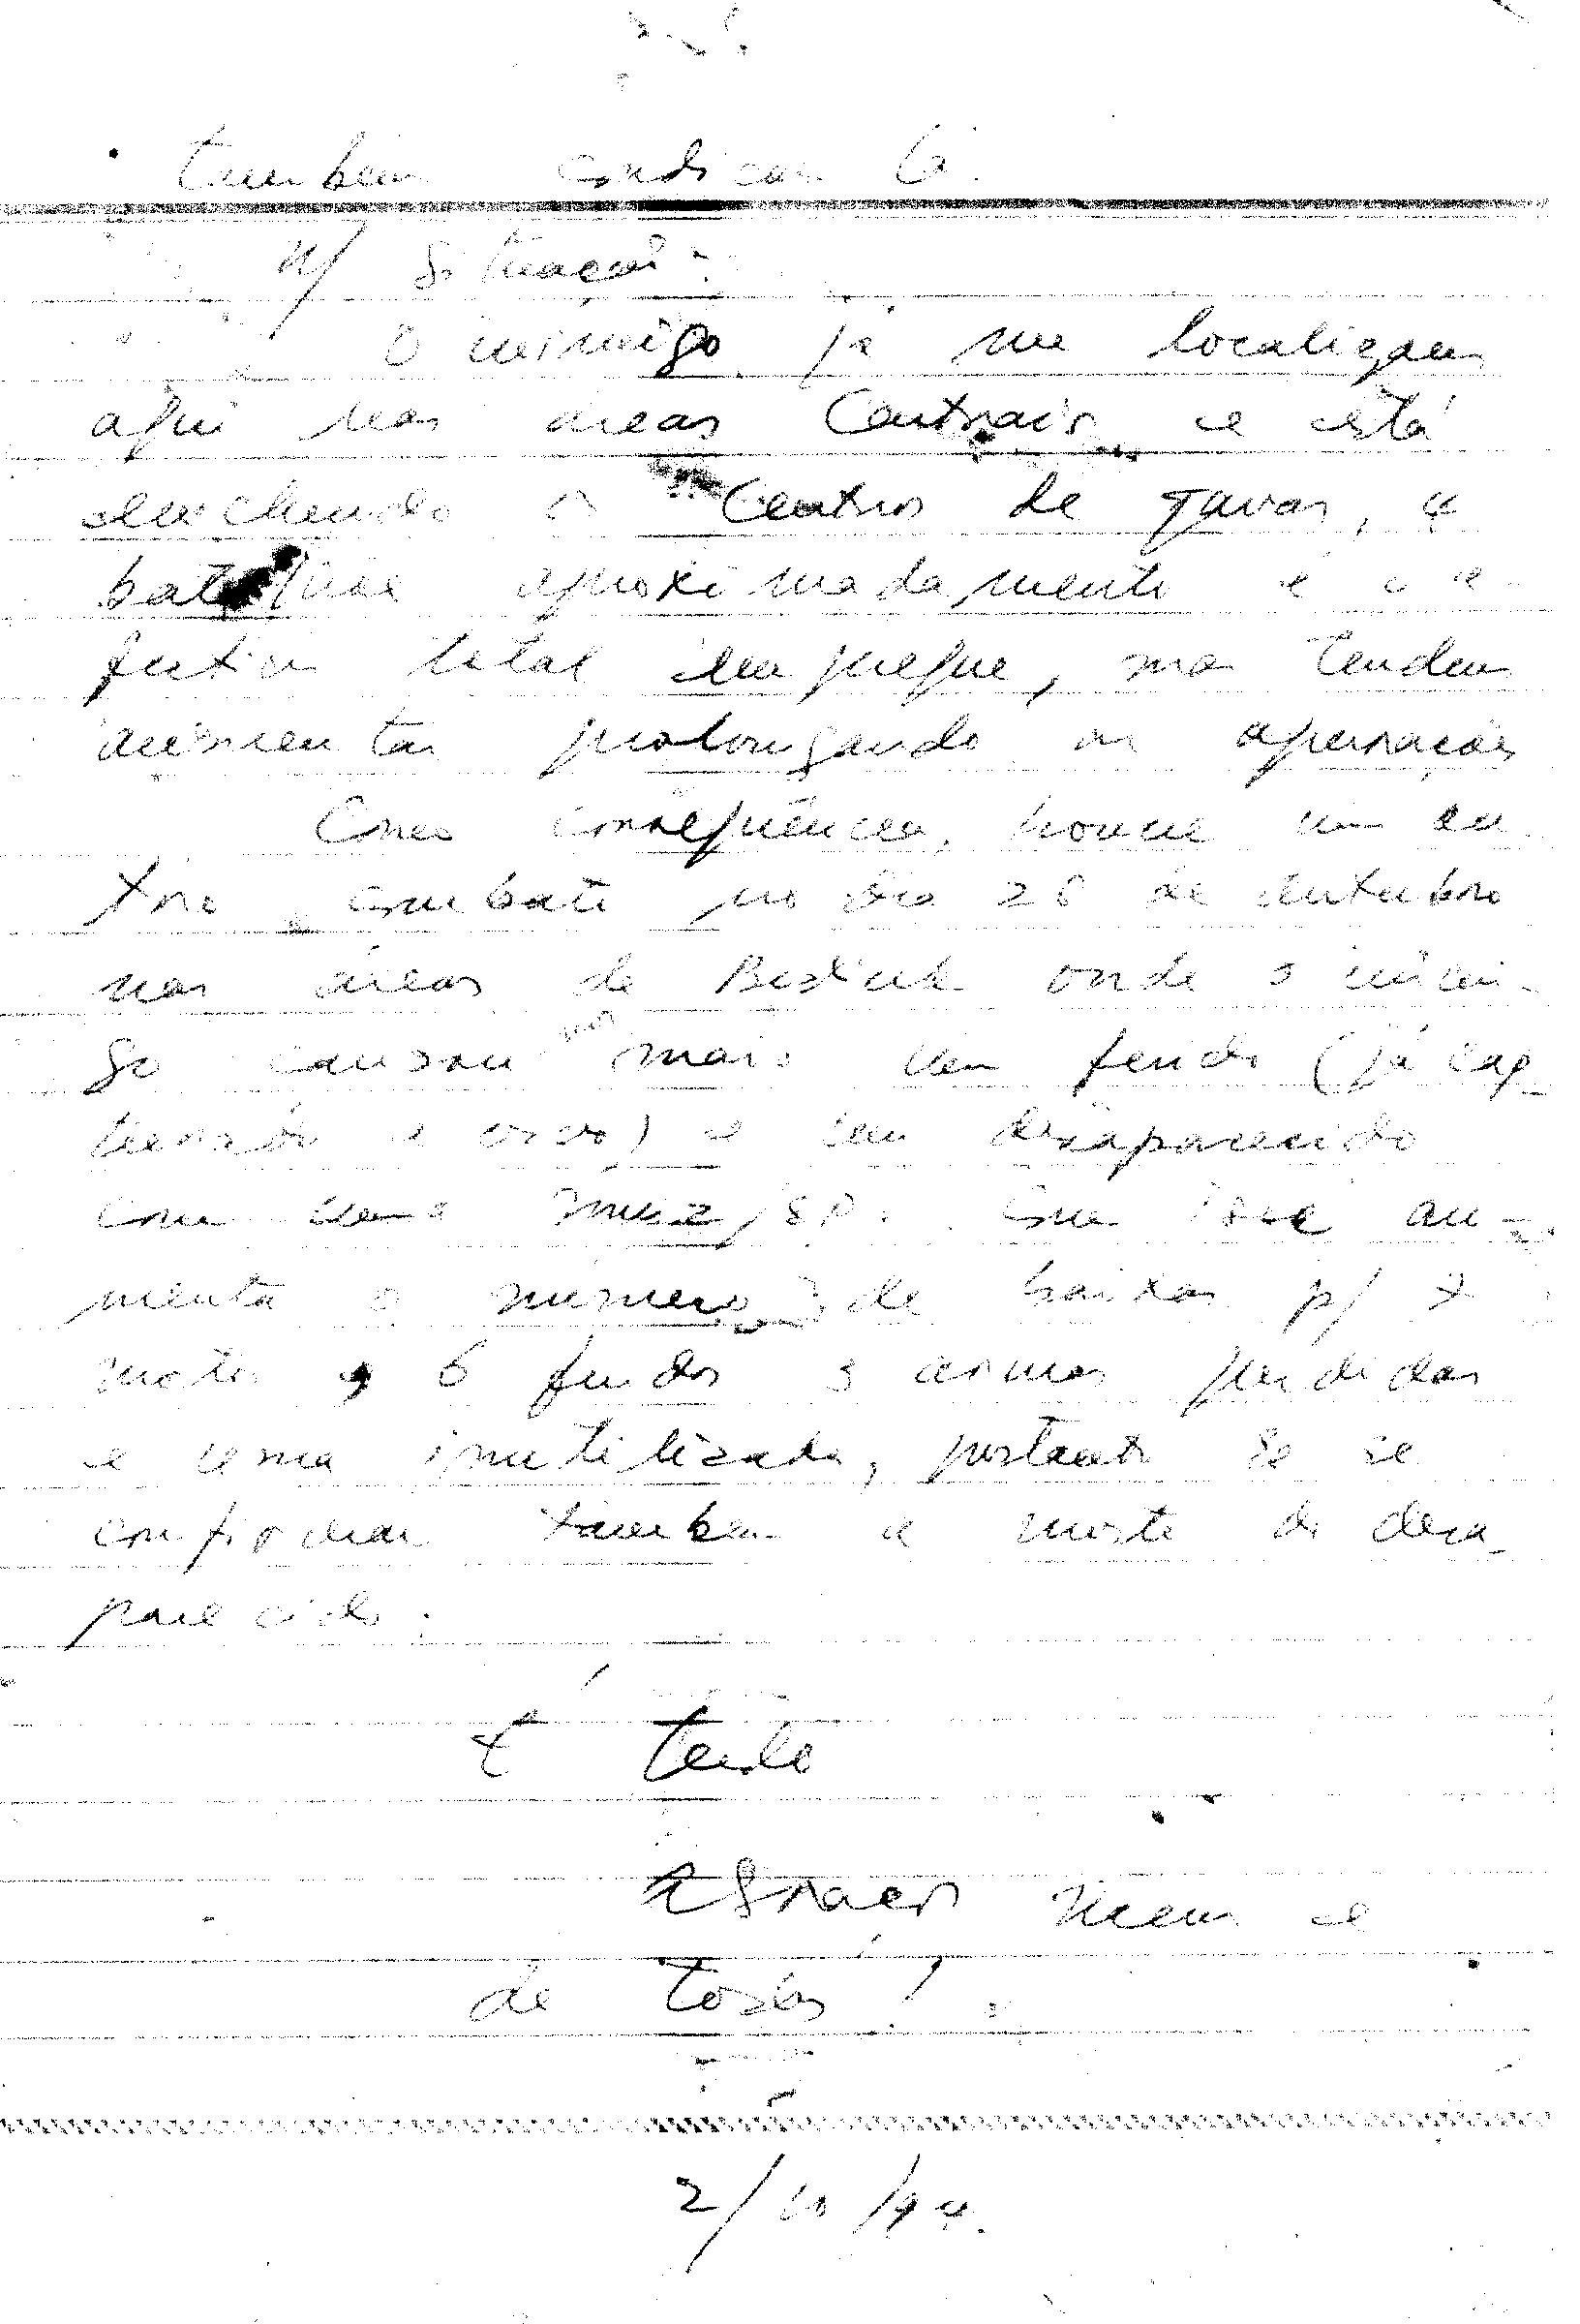 tambem indicar lá.
N/ Situação:
O inimigo já me localizou
aqui nas áreas Centrais e está
enchendo o Centro de tavas, 4
batalhões aproximadamente e o e
fectivo total empregue, mas tendem
aumentar prolongando as operações
Como consequência, houve um en
tro combate no dia 26 de Outubro
nas áreas de onde o inimi-
go causou mais um ferido (já cap
turado e vivo) e um desaparecido
com uma Com isso au-
menta o número de baixas p/ 7
mortos e 6 feridos 3 armas perdidas
e uma inutilizada, portanto se se
confirmar tambem a morte do desa_
parecido.
É tudo
Abraços meus e
de todos!
2/10/94.